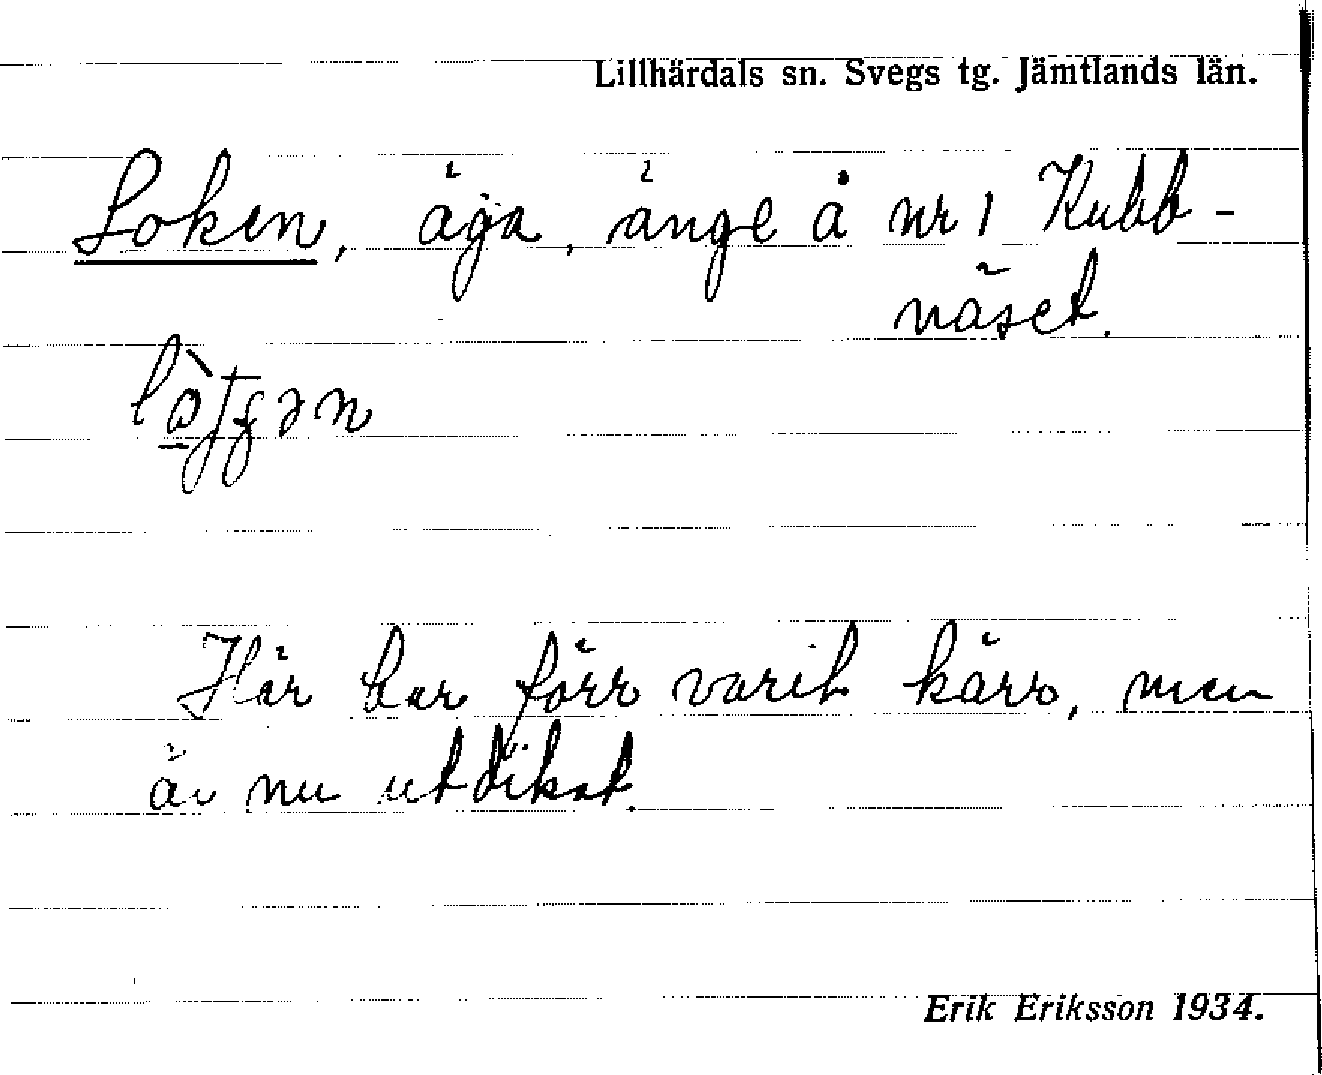 Lillhärdals sn. Svegs tg. Jämtlands län.
Loken, äga, änge å nr 1 Kubb-
näset.
Här har förr varit kärr, men
är nu utdikat.
Erik Eriksson 1934.